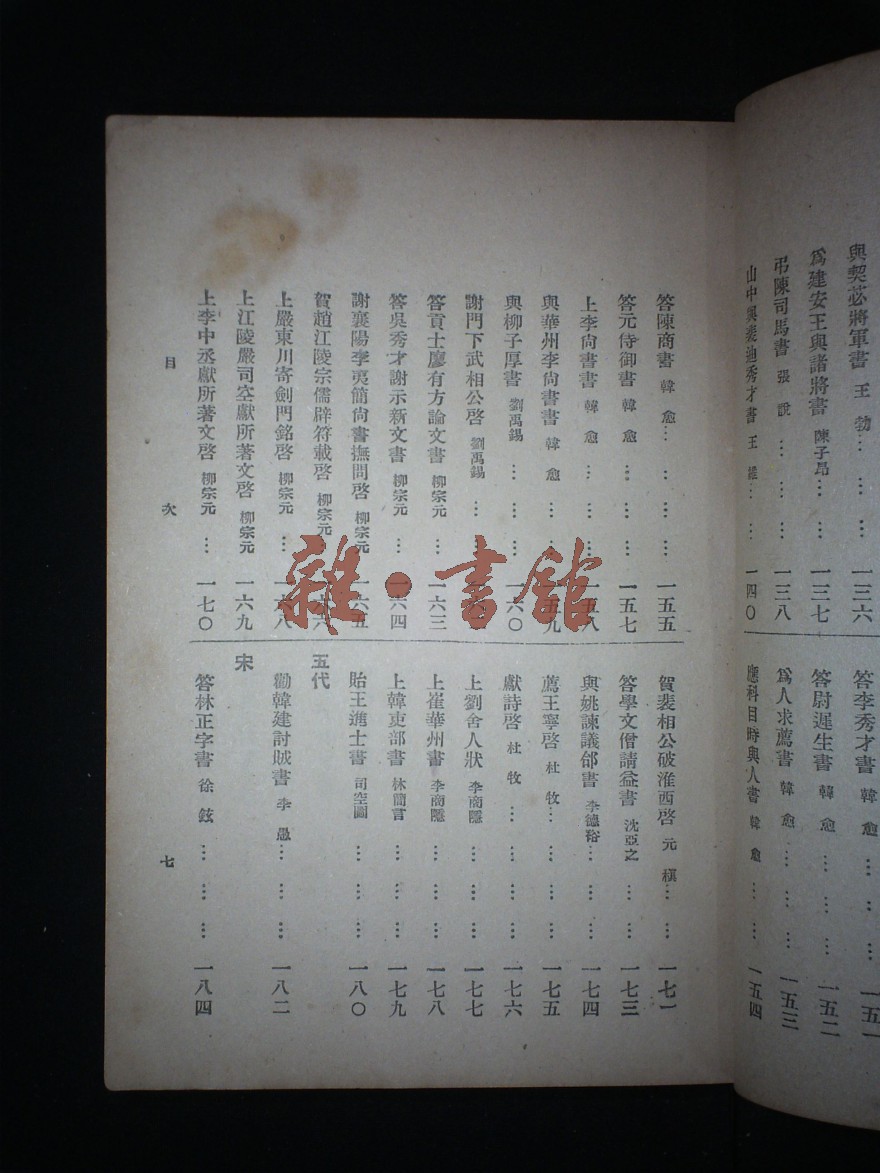 與契苾將軍書 王 勃… … … 一三六
爲建安王與諸將書 陳子昂… … 一三七
弔陳司馬書 張 說 … … … … 一三八
山中與裴迪秀才書 王 維… … … 一四〇
答李秀才書 韓 愈… … … 一五一
答尉遲生書 韓 愈 … … … 一五二
爲人求薦書 韓 愈… … … … 一五三
應科目時與人書 韓 愈 … … … 一五四
答陳商書 韓 愈… … … … 一五五
答元侍御書 韓 愈 … … … 一五七
上李尙書書 韓 愈 … … … 一五八
與華州李尙書書 韓 愈 … … 五九
與柳子厚書 劉禹錫 … … … 一六〇
謝門下武相公啓 劉禹錫 … …
答貢士廖有方論文書 柳宗元 … 一六三
答吳秀才謝示新文書 柳宗元 … 一六四
謝襄陽李夷簡尙書撫問啓 柳宗元 一六五
賀趙江陵宗儒辟符載啓 柳宗元 … 六六
上嚴東川寄劍門銘啓 柳宗元 … 一六八
上江陵嚴司空獻所著文啓 柳宗元 一六九
上李中丞獻所著文啓 柳宗元 … 一七〇
賀裴相公破淮西啓 元 稹… … 一七一
答學文僧請益書 沈亞之 … … 一七三
與姚諫議郃書 李德裕… … … 一七四
薦王寧啓 杜 牧… … … … 一七五
獻詩啓 杜 牧 … … … … 一七六
上劉舍人狀 李商隱 … … … 一七七
上崔華州書 李商隱 … … … 一七八
上韓吏部書 林簡言 … … … 一七九
貽王進士書 司空圖 … … … 一八〇
五代
勸韓建討賊書 李 愚… … … 一八二
宋
答林正字書 徐 鉉 … … … 一八四
目 次 七
雜·書館